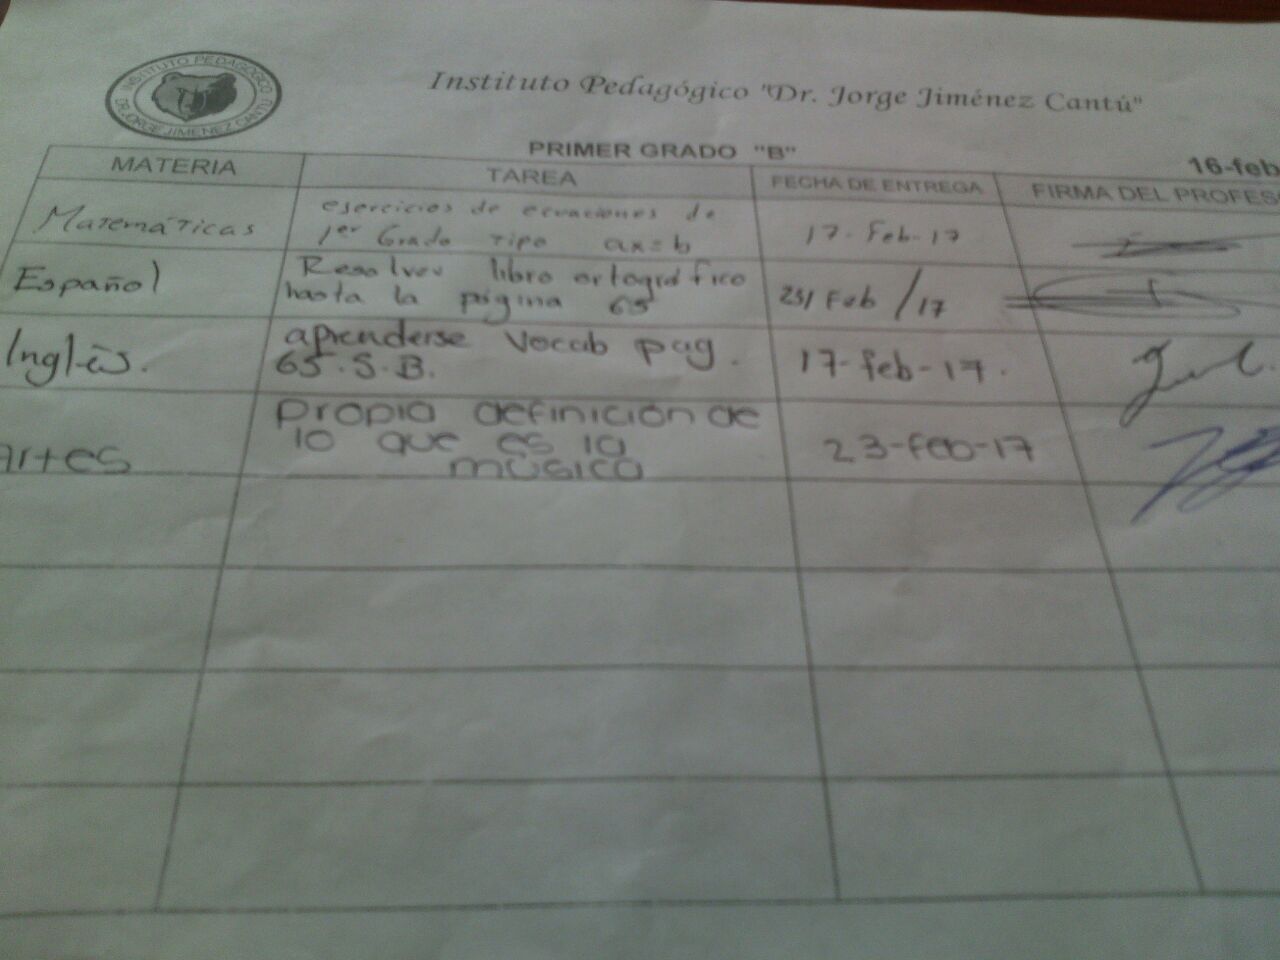 INSTITUTO PEDAGÓGICO
DR. JORGE JIMENEZ CANTÚ
Instituto Pedagógico "Dr. Jorge Jiménez Cantú"
PRIMER GRADO "B"
16-feb
MATERIA TAREA FECHA DE ENTREGA FIRMA DEL PROFES
Matemáticas ejercicios de ecuaciones de 17-Feb-17
1er Grado tipo ax=b
Español Resolver libro ortográfico /Feb/17
hasta la página 65
Inglés. aprenderse vocab pag. 17-feb-17.
65.S.B.
Artes propia definición de 23-feb-17
lo que es la
música